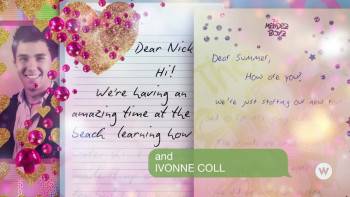 Dear Nick
Hi!
We're having an
amazing time at the
beach learning how
MENDEZ
BOYZ
Dear Summer,
How are you?
We're just starting our new
and
IVONNE COLL
W